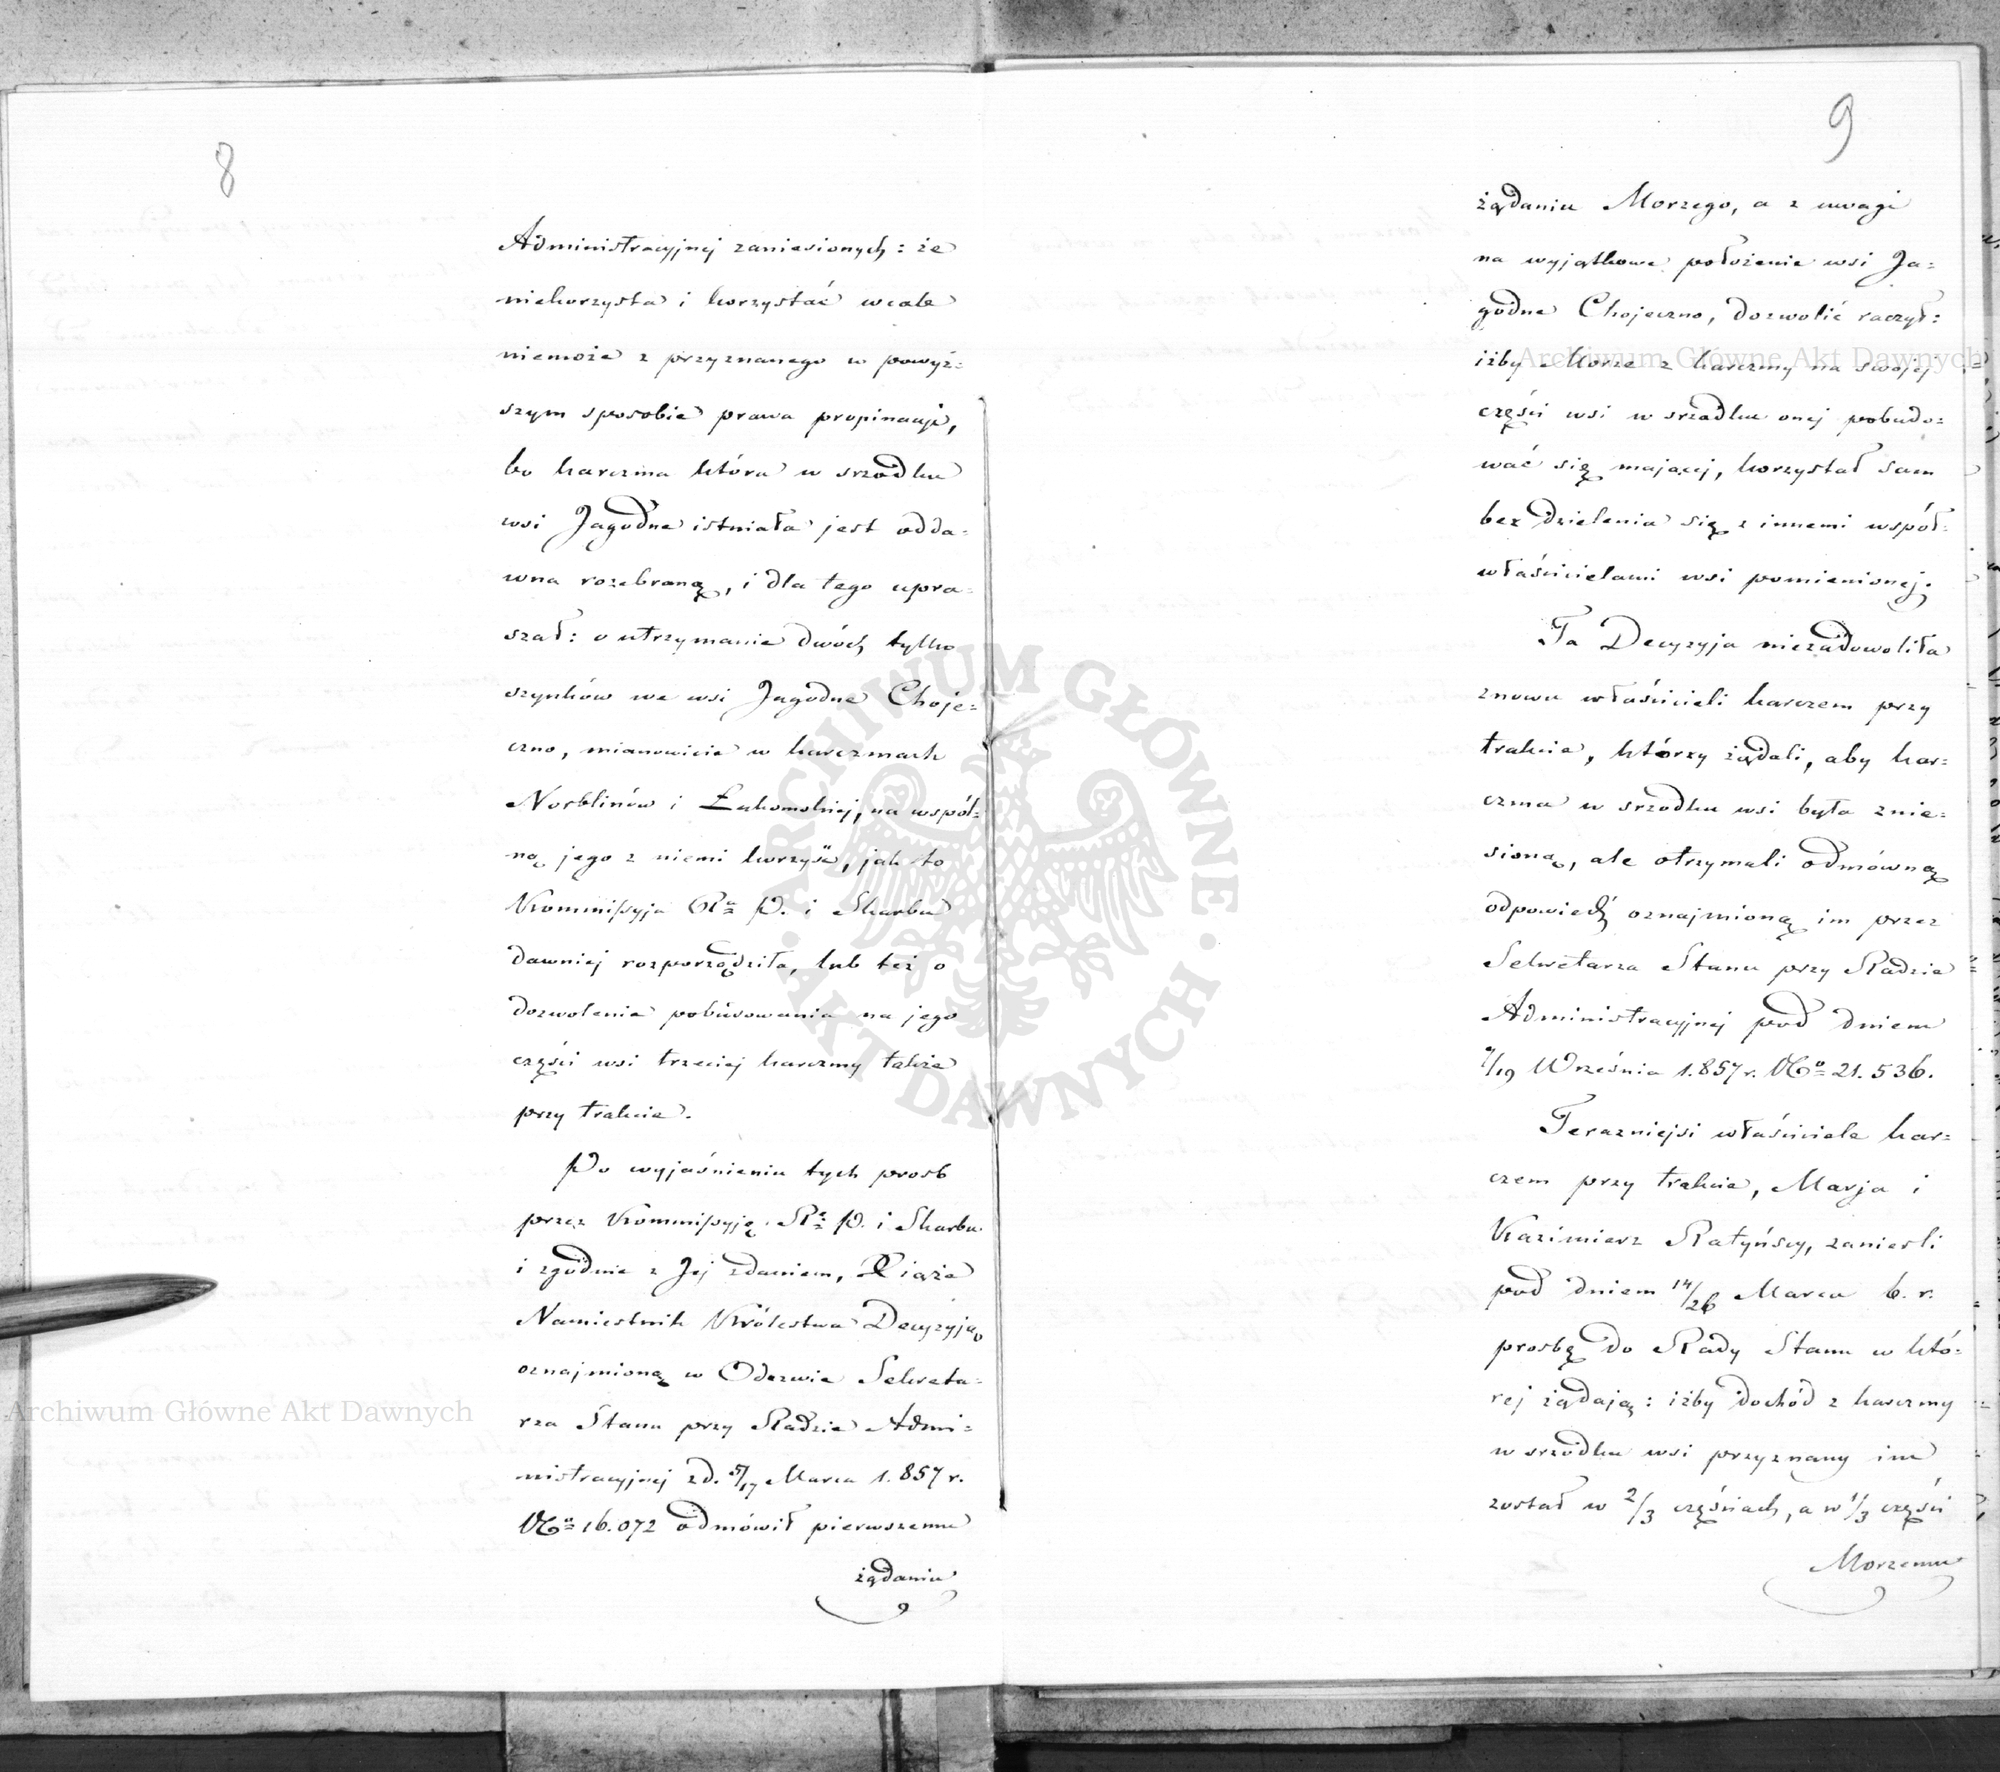 8
Administracyjnej zaniesionych: że
niekorzysta i korzystać wcale
niemoże z przyznanego w powyż=
szym sposobie prawa propinacji,
bo karczma która w srzodku
wsi Jagodne istniała jest odda-
wna rozebraną, i dla tego upra-
szał: o utrzymanie dwóch tylko
szynków we wsi Jagodne Choje-
czno, mianowicie w karczmach
Norblinów i Łukomskiej, na wspól-
ną jego z niemi korzyść, jak to
Kommissyja Rª P. i Skarbu
dawniej rozporządziła, lub też o
dozwolenie pobudowania na jego
części wsi trzeciej karczmy także
przy trakcie.
Po wyjaśnieniu tych prosb
przez Kommissyję Rª P. i Skarbu
i zgodnie z Jej zdaniem, Xiąże
Namiestnik Królestwa Decyzyją,
oznajmioną w Odezwie Sekreta-
rza Stanu przy Radzie Admi-
nistracyjnej z d. 5/17 Marca 1.857 r.
Nº 16.072 odmówił pierwszemu
żądaniu
9
żądaniu Morzego, a z uwagi
na wyjątkowe położenie wsi Ja=
godne Chojeczno, dozwolić raczył:
iżby Morze z karczmy na swojej
części wsi w srzodku onej pobudo=
wać się mającej, korzystał sam
bez dzielenia się z innemi współ-
właścicielami wsi pomienionej.
Ta Decyzyja niezadowoliła
znowu właścicieli karczem przy
trakcie, którzy żądali, aby kar=
czma w srzodku wsi była znie-
sioną, ale otrzymali odmówną
odpowiedź oznajmioną im przez
Sekretarza Stanu przy Radzie
Administracyjnej pod dniem
7/19 Września 1.857 r. Nº 21.536.
Terazniejsi właściciele kar=
czem przy trakcie, Marja i
Kazimierz Ratyńscy, zanieśli
pod dniem 14/26 Marca b. r.
prosbę do Rady Stanu w któ-
rej żądają: iżby dochód z karczmy
w srzodku wsi przyznany im
został w 2/3 częściach, a w 1/3 części
Morzemu
Archiwum Główne Akt Dawnych
ARCHIWUM GŁÓWNE
AKT DAWNYCH
Archiwum Główne Akt Dawnych